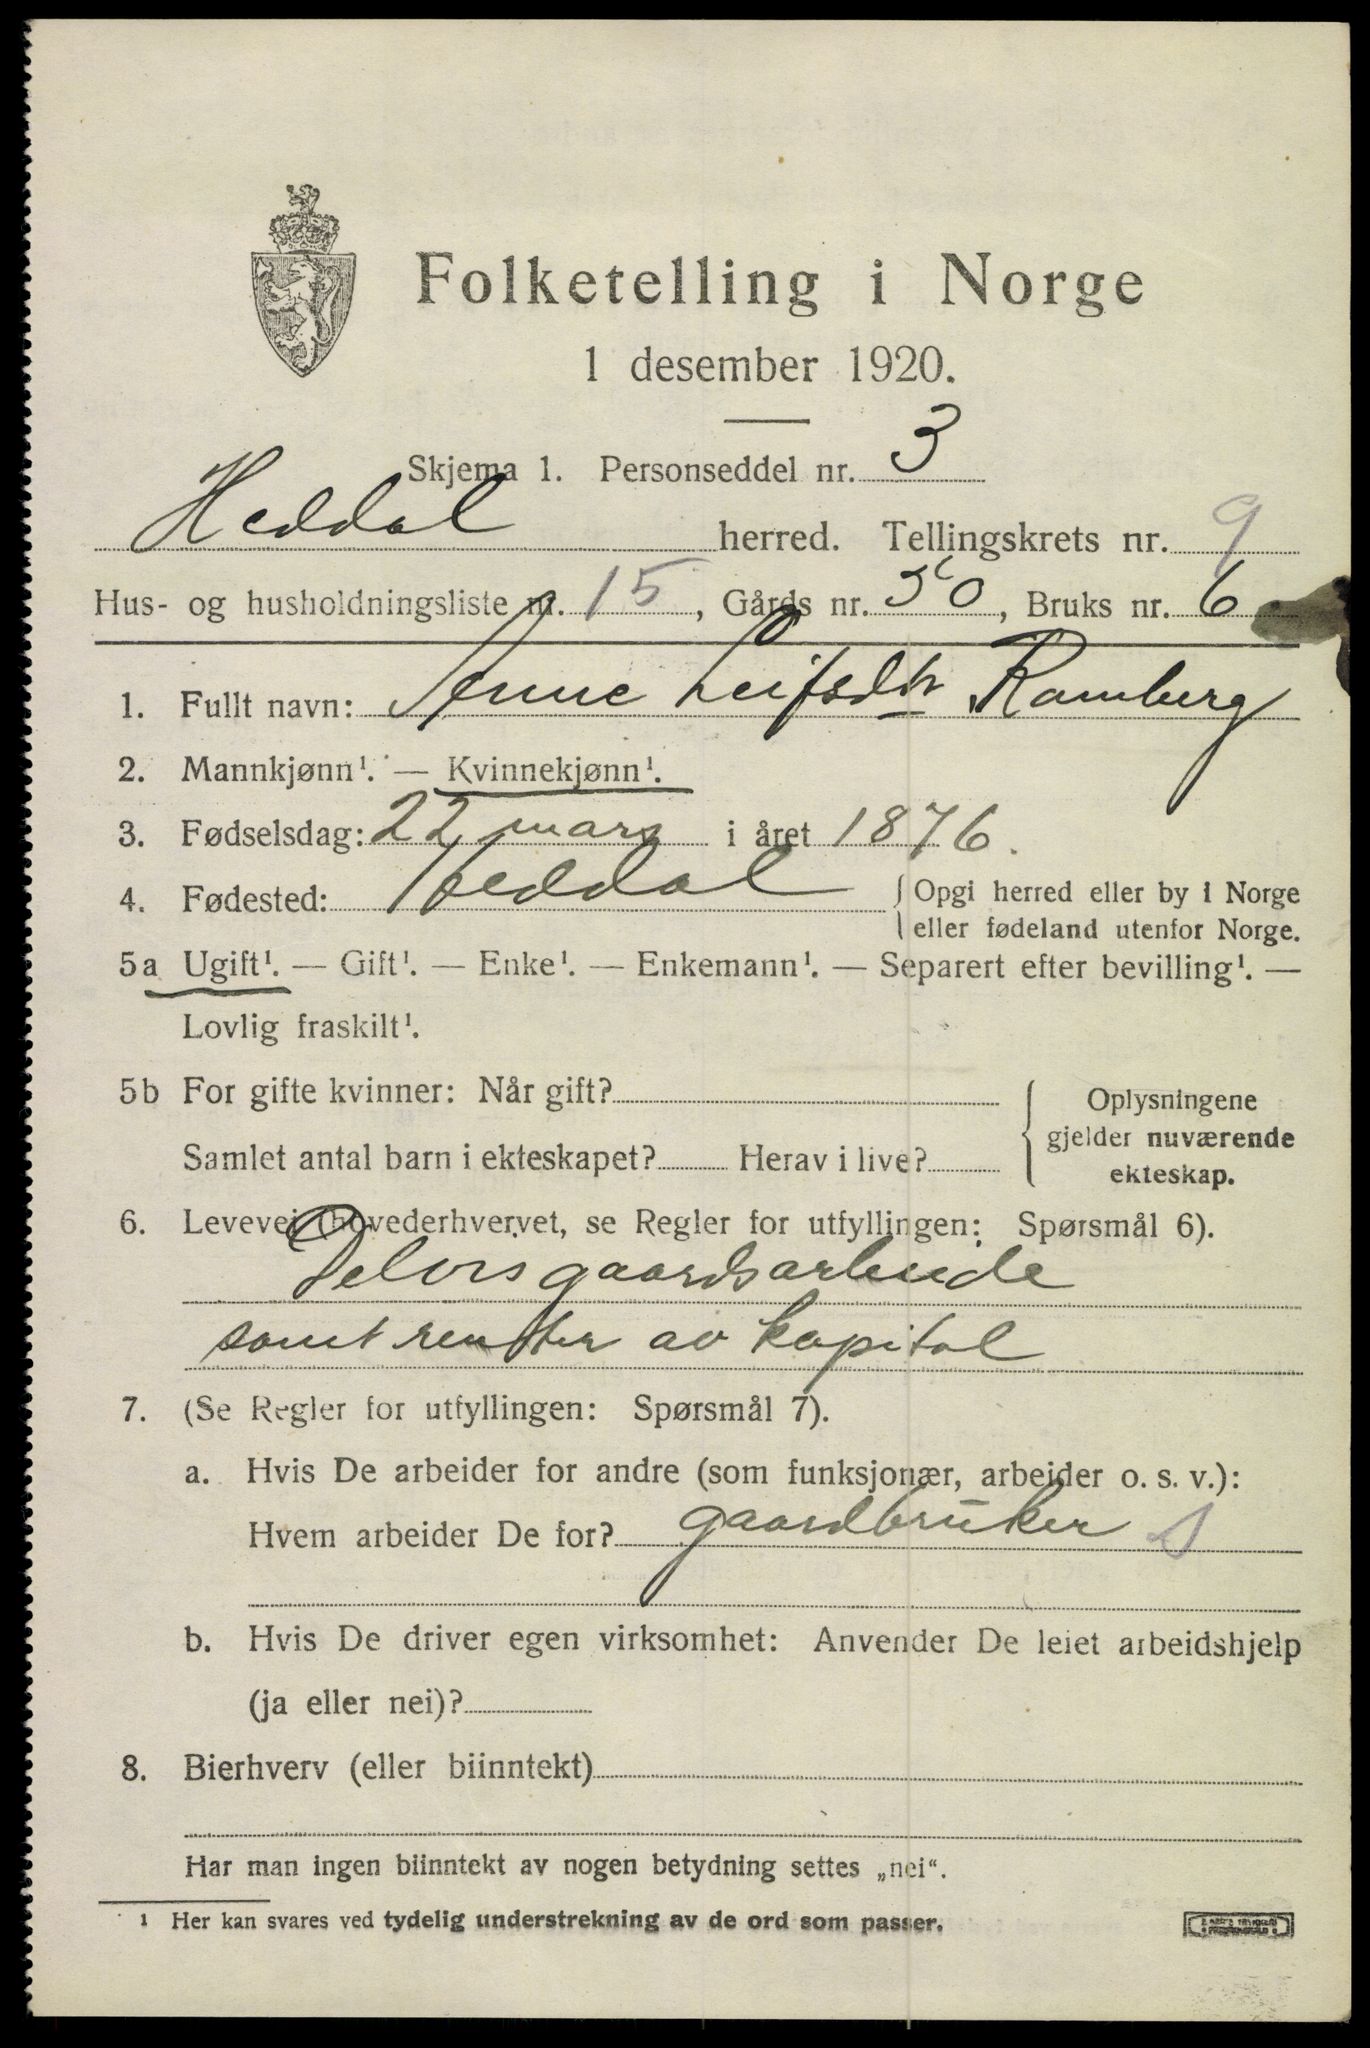 Folketelling i Norge
1 desember 1920.
Skjema 1. Personseddel nr. 3
Heddal herred. Tellingskrets nr. 9
Hus- og husholdningsliste nr. 15, Gårds nr. 50, Bruks nr. 6
1. Fullt navn: Anne Leifsdtr Ramberg
2. Mannkjønn¹. — Kvinnekjønn¹.
3. Fødselsdag: 22 mars i året 1876.
4. Fødested: Heddal { Opgi herred eller by i Norge
eller fødeland utenfor Norge.
5a Ugift¹. — Gift¹. — Enke¹. — Enkemann¹. — Separert efter bevilling¹. —
Lovlig fraskilt¹.
5b For gifte kvinner: Når gift?
Samlet antal barn i ekteskapet? Herav i live?
{ Oplysningene
gjelder nuværende
ekteskap.
6. Levevei (hovederhvervet, se Regler for utfyllingen: Spørsmål 6).
Delvis gaardsarbeide
samt renter av kapital
7. (Se Regler for utfyllingen: Spørsmål 7).
a. Hvis De arbeider for andre (som funksjonær, arbeider o. s. v.):
Hvem arbeider De for? gaardbruker
b. Hvis De driver egen virksomhet: Anvender De leiet arbeidshjelp
(ja eller nei)?
8. Bierhverv (eller biinntekt)
Har man ingen biinntekt av nogen betydning settes „nei“.
¹ Her kan svares ved tydelig understrekning av de ord som passer.